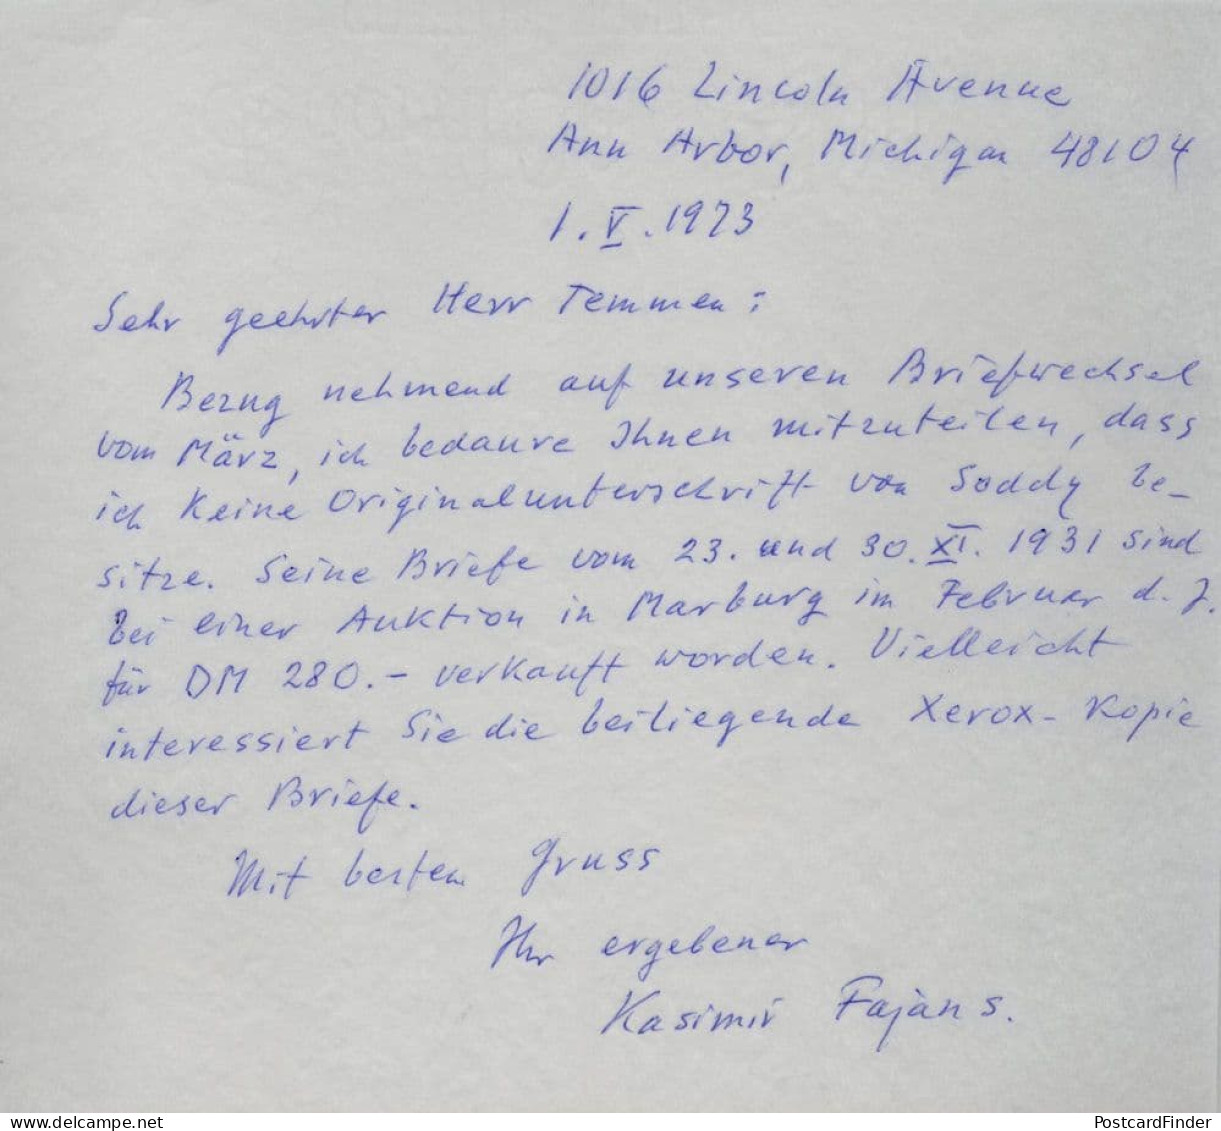 1016 Lincoln Avenue
Ann Arbor, Michigan 48104
1. V. 1973
Sehr geehrter Herr Temmen:
Bezug nehmend auf unseren Briefwechsel
vom März, ich bedaure Ihnen mitzuteilen, dass
ich keine Originalunterschrift von Soddy be-
sitze. Seine Briefe vom 23. und 30. XI. 1931 sind
bei einer Auktion in Marburg im Februar d. J.
für DM 280.- verkauft worden. Vielleicht
interessiert Sie die beiliegende Xerox-Kopie
dieser Briefe.
Mit besten Gruss
Ihr ergebener
Kasimir Fajans.
delcampe.net
PostcardFinder